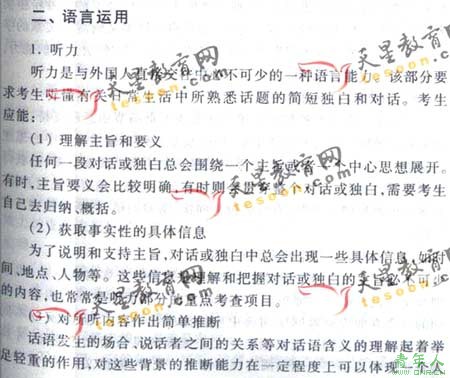 二、语言运用
1. 听力
听力是与外国人直接交往中必不可少的一种语言能力。该部分要
求考生听懂有关日常生活中所熟悉话题的简短独白和对话。考生
应能:
(1) 理解主旨和要义
任何一段对话或独白总会围绕一个主旨或一个中心思想展开。
有时,主旨要义会比较明确,有时则会贯穿整个对话或独白,需要考生
自己去归纳、概括。
(2) 获取事实性的具体信息
为了说明和支持主旨,对话或独白中总会出现一些具体信息,如时
间、地点、人物等。这些信息是理解和把握对话或独白的主旨必不可少
的内容,也常常是听力部分的重点考查项目。
(3) 对所听内容作出简单推断
话语发生的场合、说话者之间的关系等对话语含义的理解起着举
足轻重的作用,对这些背景的推断能力在一定程度上可以体现一个人
天星教育网
tesoon.com
天星教育网
tesoon.com
天星教育网
tesoon.com
天星教育网
tesoon.com
天星教育网
tesoon.com
青年人